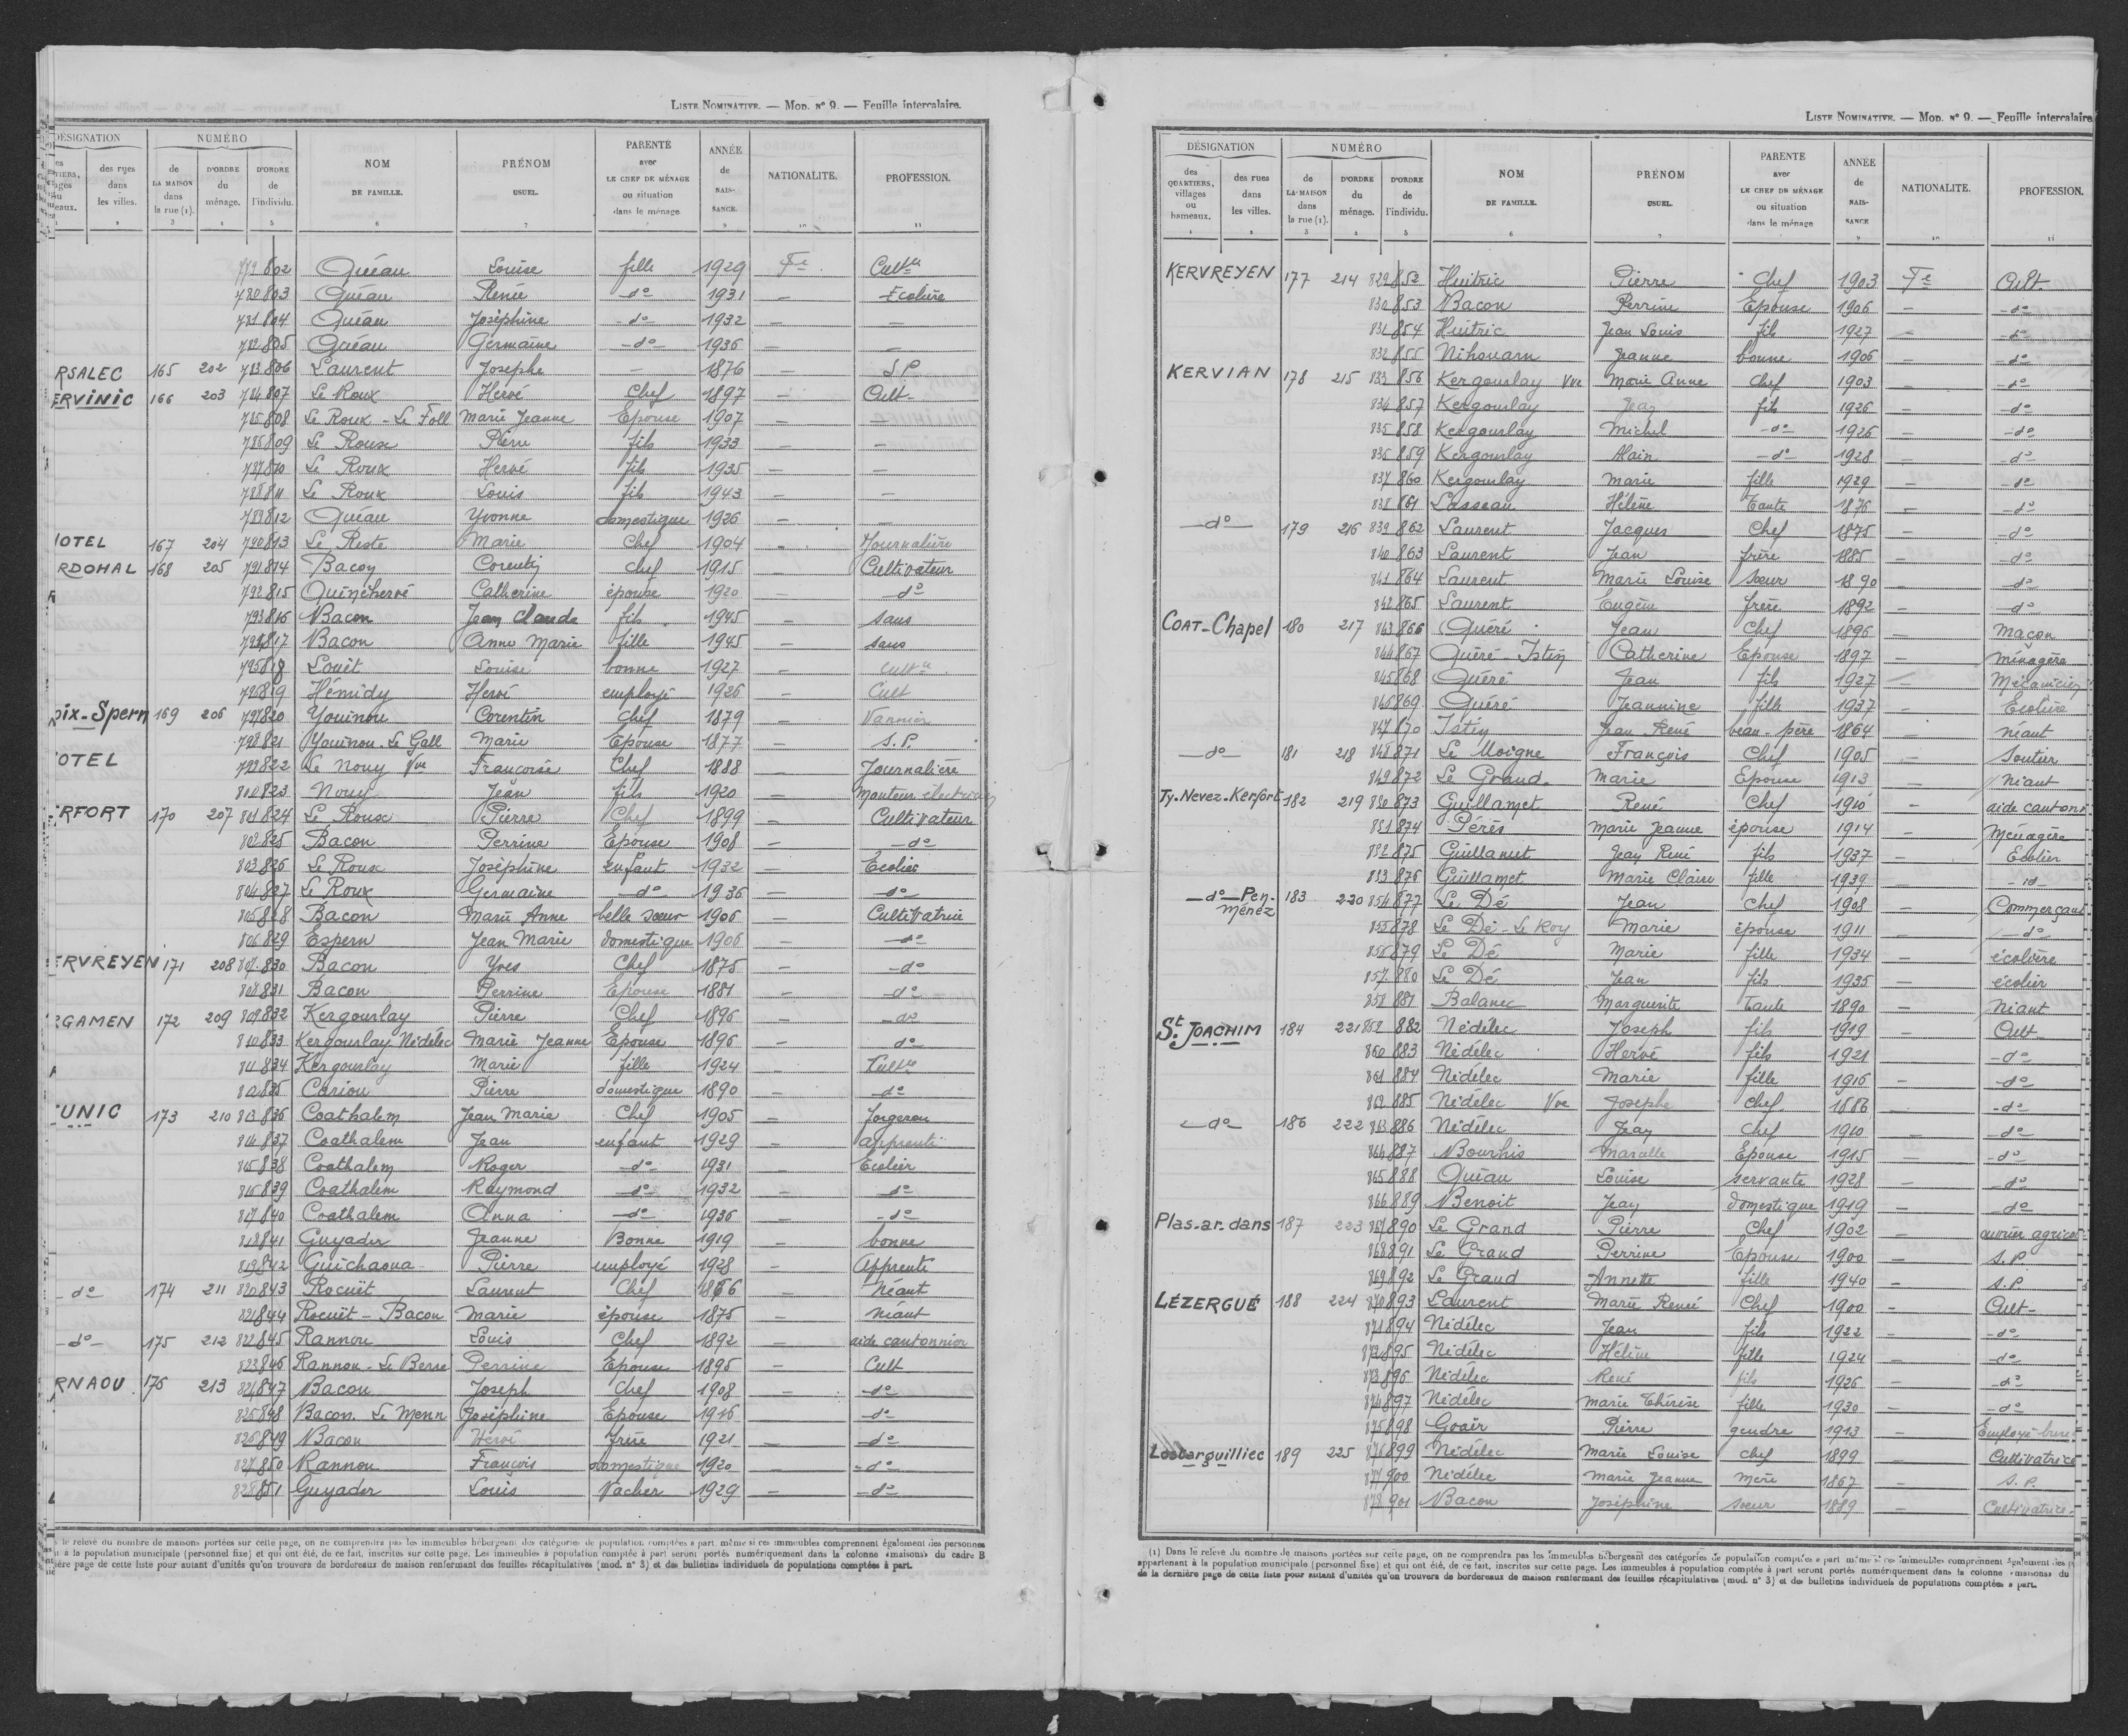 LISTE NOMINATIVE. — MOD. N° 9. — Feuille intercalaire.
DÉSIGNATION NUMÉRO NOM DE FAMILLE. PRÉNOM USUEL. PARENTÉ avec LE CHEF DE MÉNAGE ou situation dans le ménage ANNÉE de NAIS- SANCE. NATIONALITE. PROFESSION.
des rues dans les villes. de LA MAISON dans la rue (1). D'ORDRE du ménage. D'ORDRE de l'individu.
802 Quéau Louise fille 1929 Fe Cultce
803 Quéau Renée - do - 1931 — Ecolière
804 Quéau Joséphine - do - 1932 — —
805 Quéau Germaine - do - 1936 — —
RSALEC 165 202 783 806 Laurent Josephe — 1876 — S.P.
ERVINIC 166 203 784 807 Le Roux Hervé Chef 1897 — Cult-
785 808 Le Roux - Le Foll Marie Jeanne Epouse 1907 — —
786 809 Le Roux Pierre fils 1933 — —
787 810 Le Roux Hervé fils 1935 — —
788 811 Le Roux Louis fils 1943 — —
789 812 Quéau Yvonne domestique 1926 — —
OTEL 167 204 790 813 Le Reste Marie Chef 1904 — Journalière
RDOHAL 168 205 791 814 Bacon Corentin chef 1915 — Cultivateur
792 815 Quinchervé Catherine épouse 1920 — do
793 816 Bacon Jean Claude fils 1945 — sans
794 817 Bacon Anne Marie fille 1945 — sans
795 818 Louët Louise bonne 1927 — Cultce
796 819 Hémidy Hervé employé 1926 — Cult
oix-Spern 169 206 797 820 Youinou Corentin chef 1879 — Vannier
798 821 Youinou - Le Gall Marie Epouse 1877 — S.P.
OTEL 799 822 Le Nouy Vve Françoise Chef 1888 — Journalière
800 823 Nouy Jean fils 1920 — Monteur électricien
RFORT 170 207 801 824 Le Roux Pierre Chef 1899 — Cultivateur
802 825 Bacon Perrine Epouse 1908 — - do
803 826 Le Roux Joséphine enfant 1932 — Ecolier
804 827 Le Roux Germaine - do - 1936 — - do -
805 828 Bacon Marie Anne belle sœur 1906 — Cultivatrice
806 829 Espern Jean Marie domestique 1906 — - do -
ERVREYEN 171 208 807 830 Bacon Yves Chef 1875 — - do -
808 831 Bacon Perrine Epouse 1881 — - do -
RGAMEN 172 209 809 832 Kergourlay Pierre Chef 1896 — - do
810 833 Kergourlay Nédélec Marie Jeanne Epouse 1896 — do
811 834 Kergourlay Marie fille 1924 — Cultce
812 835 Cariou Pierre domestique 1890 — do
UNIC 173 210 813 836 Coathalem Jean Marie Chef 1905 — forgeron
814 837 Coathalem Jean enfant 1929 — apprenti
815 838 Coathalem Roger - do - 1931 — Ecolier
816 839 Coathalem Raymond - do - 1932 — - do -
817 840 Coathalem Anna - do - 1936 — - do -
818 841 Guyader Jeanne Bonne 1919 — bonne
819 842 Guichaoua Pierre employé 1928 — Apprenti
- do - 174 211 820 843 Rocuët Laurent Chef 1866 — Néant
821 844 Rocuët - Bacon Marie épouse 1875 — néant
- do - 175 212 822 845 Rannou Louis Chef 1892 — aide cantonnier
823 846 Rannou - Le Berre Perrine Epouse 1895 — Cult
RNAOU 176 213 824 847 Bacon Joseph Chef 1908 — - do -
825 848 Bacon. Le Menn Joséphine Epouse 1916 — - do -
826 849 Bacon Hervé frère 1921 — - do -
827 850 Rannou François domestique 1920 — - do -
828 851 Guyader Louis Vacher 1929 — - do -
le relevé du nombre de maisons portées sur cette page, on ne comprendra pas les immeubles hébergeant des catégories de population comptées à part, même si ces immeubles comprennent également des personnes
à la population municipale (personnel fixe) et qui ont été, de ce fait, inscrites sur cette page. Les immeubles à population comptée à part seront portés numériquement dans la colonne «maisons» du cadre B
ière page de cette liste pour autant d'unités qu'on trouvera de bordereaux de maison renfermant des feuilles récapitulatives (mod. n° 3) et des bulletins individuels de populations comptées à part.
LISTE NOMINATIVE. — MOD. N° 9. — Feuille intercalaire
DÉSIGNATION NUMÉRO NOM DE FAMILLE. PRÉNOM USUEL. PARENTÉ avec LE CHEF DE MÉNAGE ou situation dans le ménage ANNÉE de NAIS- SANCE NATIONALITE. PROFESSION.
des QUARTIERS, villages ou hameaux. des rues dans les villes. de LA MAISON dans la rue (1). D'ORDRE du ménage. D'ORDRE de l'individu.
KERVREYEN 177 214 829 852 Huitric Pierre Chef 1903 Fe Cult-
830 853 Bacon Perrine Epouse 1906 — - do
831 854 Huitric Jean Louis fils 1927 — - do
832 855 Nihouarn Jeanne bonne 1906 — - do
KERVIAN 178 215 833 856 Kergourlay Vve Marie Anne Chef 1903 — - do
834 857 Kergourlay Jean fils 1926 — - do
835 858 Kergourlay Michel - do - 1926 — - do
836 859 Kergourlay Alain - do - 1928 — - do
837 860 Kergourlay Marie fille 1929 — - do
838 861 Lasseau Hélène Tante 1876 — - do
- do - 179 216 839 862 Laurent Jacques Chef 1875 — - do
840 863 Laurent Jean frère 1885 — do
841 864 Laurent Marie Louise sœur 1890 — do
842 865 Laurent Eugène frère 1892 — do
COAT-Chapel 180 217 843 866 Quéré Jean Chef 1896 — Maçon
844 867 Quéré - Istin Catherine Epouse 1897 — ménagère
845 868 Quéré Jean fils 1927 — Mécanicien
846 869 Quéré Jeannine fille 1937 — Ecolière
847 870 Istin Jean René beau-père 1864 — néant
- do - 181 218 848 871 Le Moigne François Chef 1905 — Soutier
849 872 Le Grand Marie Epouse 1913 — Néant
Ty-Nevez-Kerfort 182 219 850 873 Guillamet René Chef 1910 — aide canton
851 874 Pérès Marie Jeanne épouse 1914 — Ménagère
852 875 Guillamet Jean René fils 1937 — Ecolier
853 876 Guillamet Marie Claire fille 1939 — - id -
- do - Pen-Ménez 183 220 854 877 Le Dé Jean Chef 1908 — Commerçant
855 878 Le Dé - Le Roy Marie épouse 1911 — - do -
856 879 Le Dé Marie fille 1934 — écolière
857 880 Le Dé Jean fils 1935 — écolier
858 881 Balanec Marguerite tante 1890 — Néant
St. JOACHIM 184 221 859 882 Nédélec Joseph fils 1919 — Cult
860 883 Nédélec Hervé fils 1921 — - do -
861 884 Nédélec Marie fille 1916 — - do -
862 885 Nédélec Vve Josephe chef 1886 — - do -
- do - 186 222 863 886 Nédélec Jean chef 1910 — - do -
864 887 Bourhis Marcelle Epouse 1915 — - do
865 888 Quéau Louise servante 1928 — - do
866 889 Benoit Jean domestique 1919 — - do
Plas-ar-dans 187 223 867 890 Le Grand Pierre Chef 1902 — ouvrier agricol
868 891 Le Grand Perrine Epouse 1900 — S.P.
869 892 Le Grand Annette fille 1940 — S.P.
LÉZERGUÉ 188 224 870 893 Laurent Marie Renée Chef 1900 — Cult-
871 894 Nédélec Jean fils 1922 — - do
872 895 Nédélec Hélène fille 1924 — do
873 896 Nédélec René fils 1926 — do
874 897 Nédélec Marie Thérèse fille 1930 — - do
875 898 Goaër Pierre gendre 1913 — Employé
Lostarguilliec 189 225 876 899 Nédélec Marie Louise chef 1899 — Cultivatrice
877 900 Nédélec Marie Jeanne mère 1867 — S.P.
878 901 Bacon Joséphine sœur 1889 — Cultivatrice.
(1) Dans le relevé du nombre de maisons portées sur cette page, on ne comprendra pas les immeubles hébergeant des catégories de population comptées à part même si ces immeubles comprennent également des
appartenant à la population municipale (personnel fixe) et qui ont été, de ce fait, inscrites sur cette page. Les immeubles à population comptée à part seront portés numériquement dans la colonne «maisons» du
de la dernière page de cette liste pour autant d'unités qu'on trouvera de bordereaux de maison renfermant des feuilles récapitulatives (mod. n° 3) et des bulletins individuels de populations comptées à part.